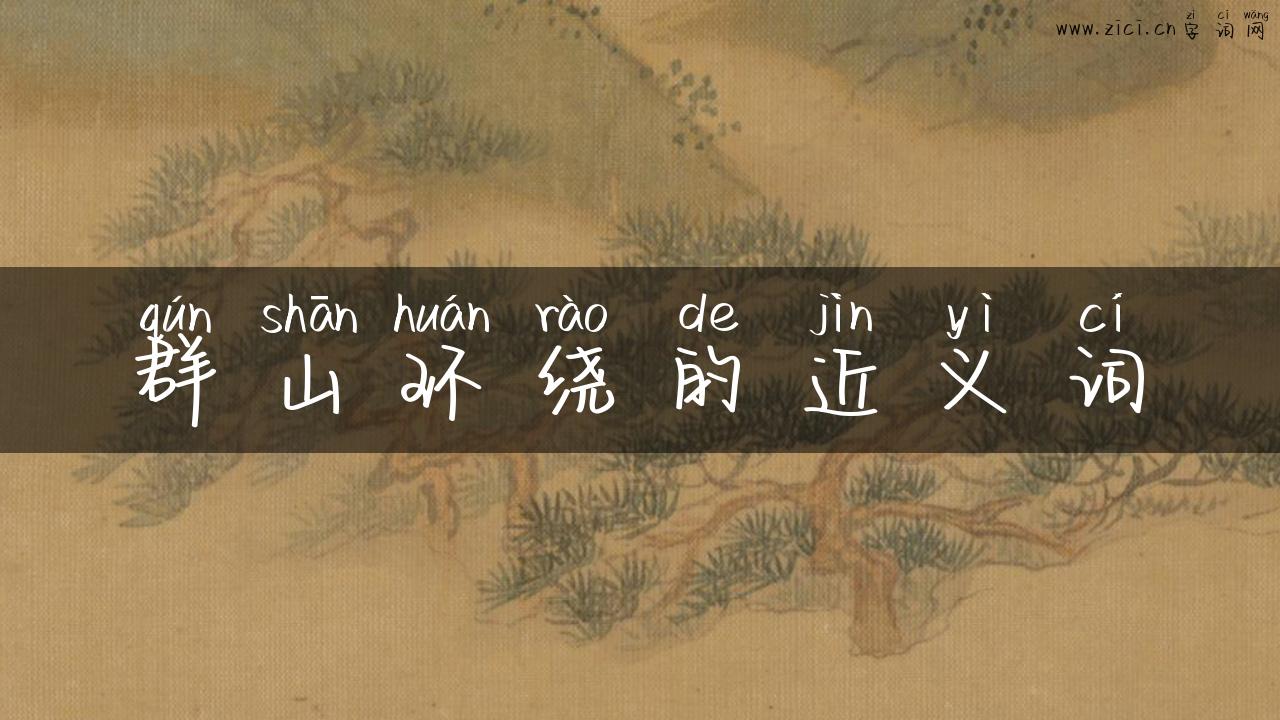 zì cí wǎng
www.zici.cn 字 词 网
qún shān huán rào de jìn yì cí
群 山 环 绕 的 近 义 词